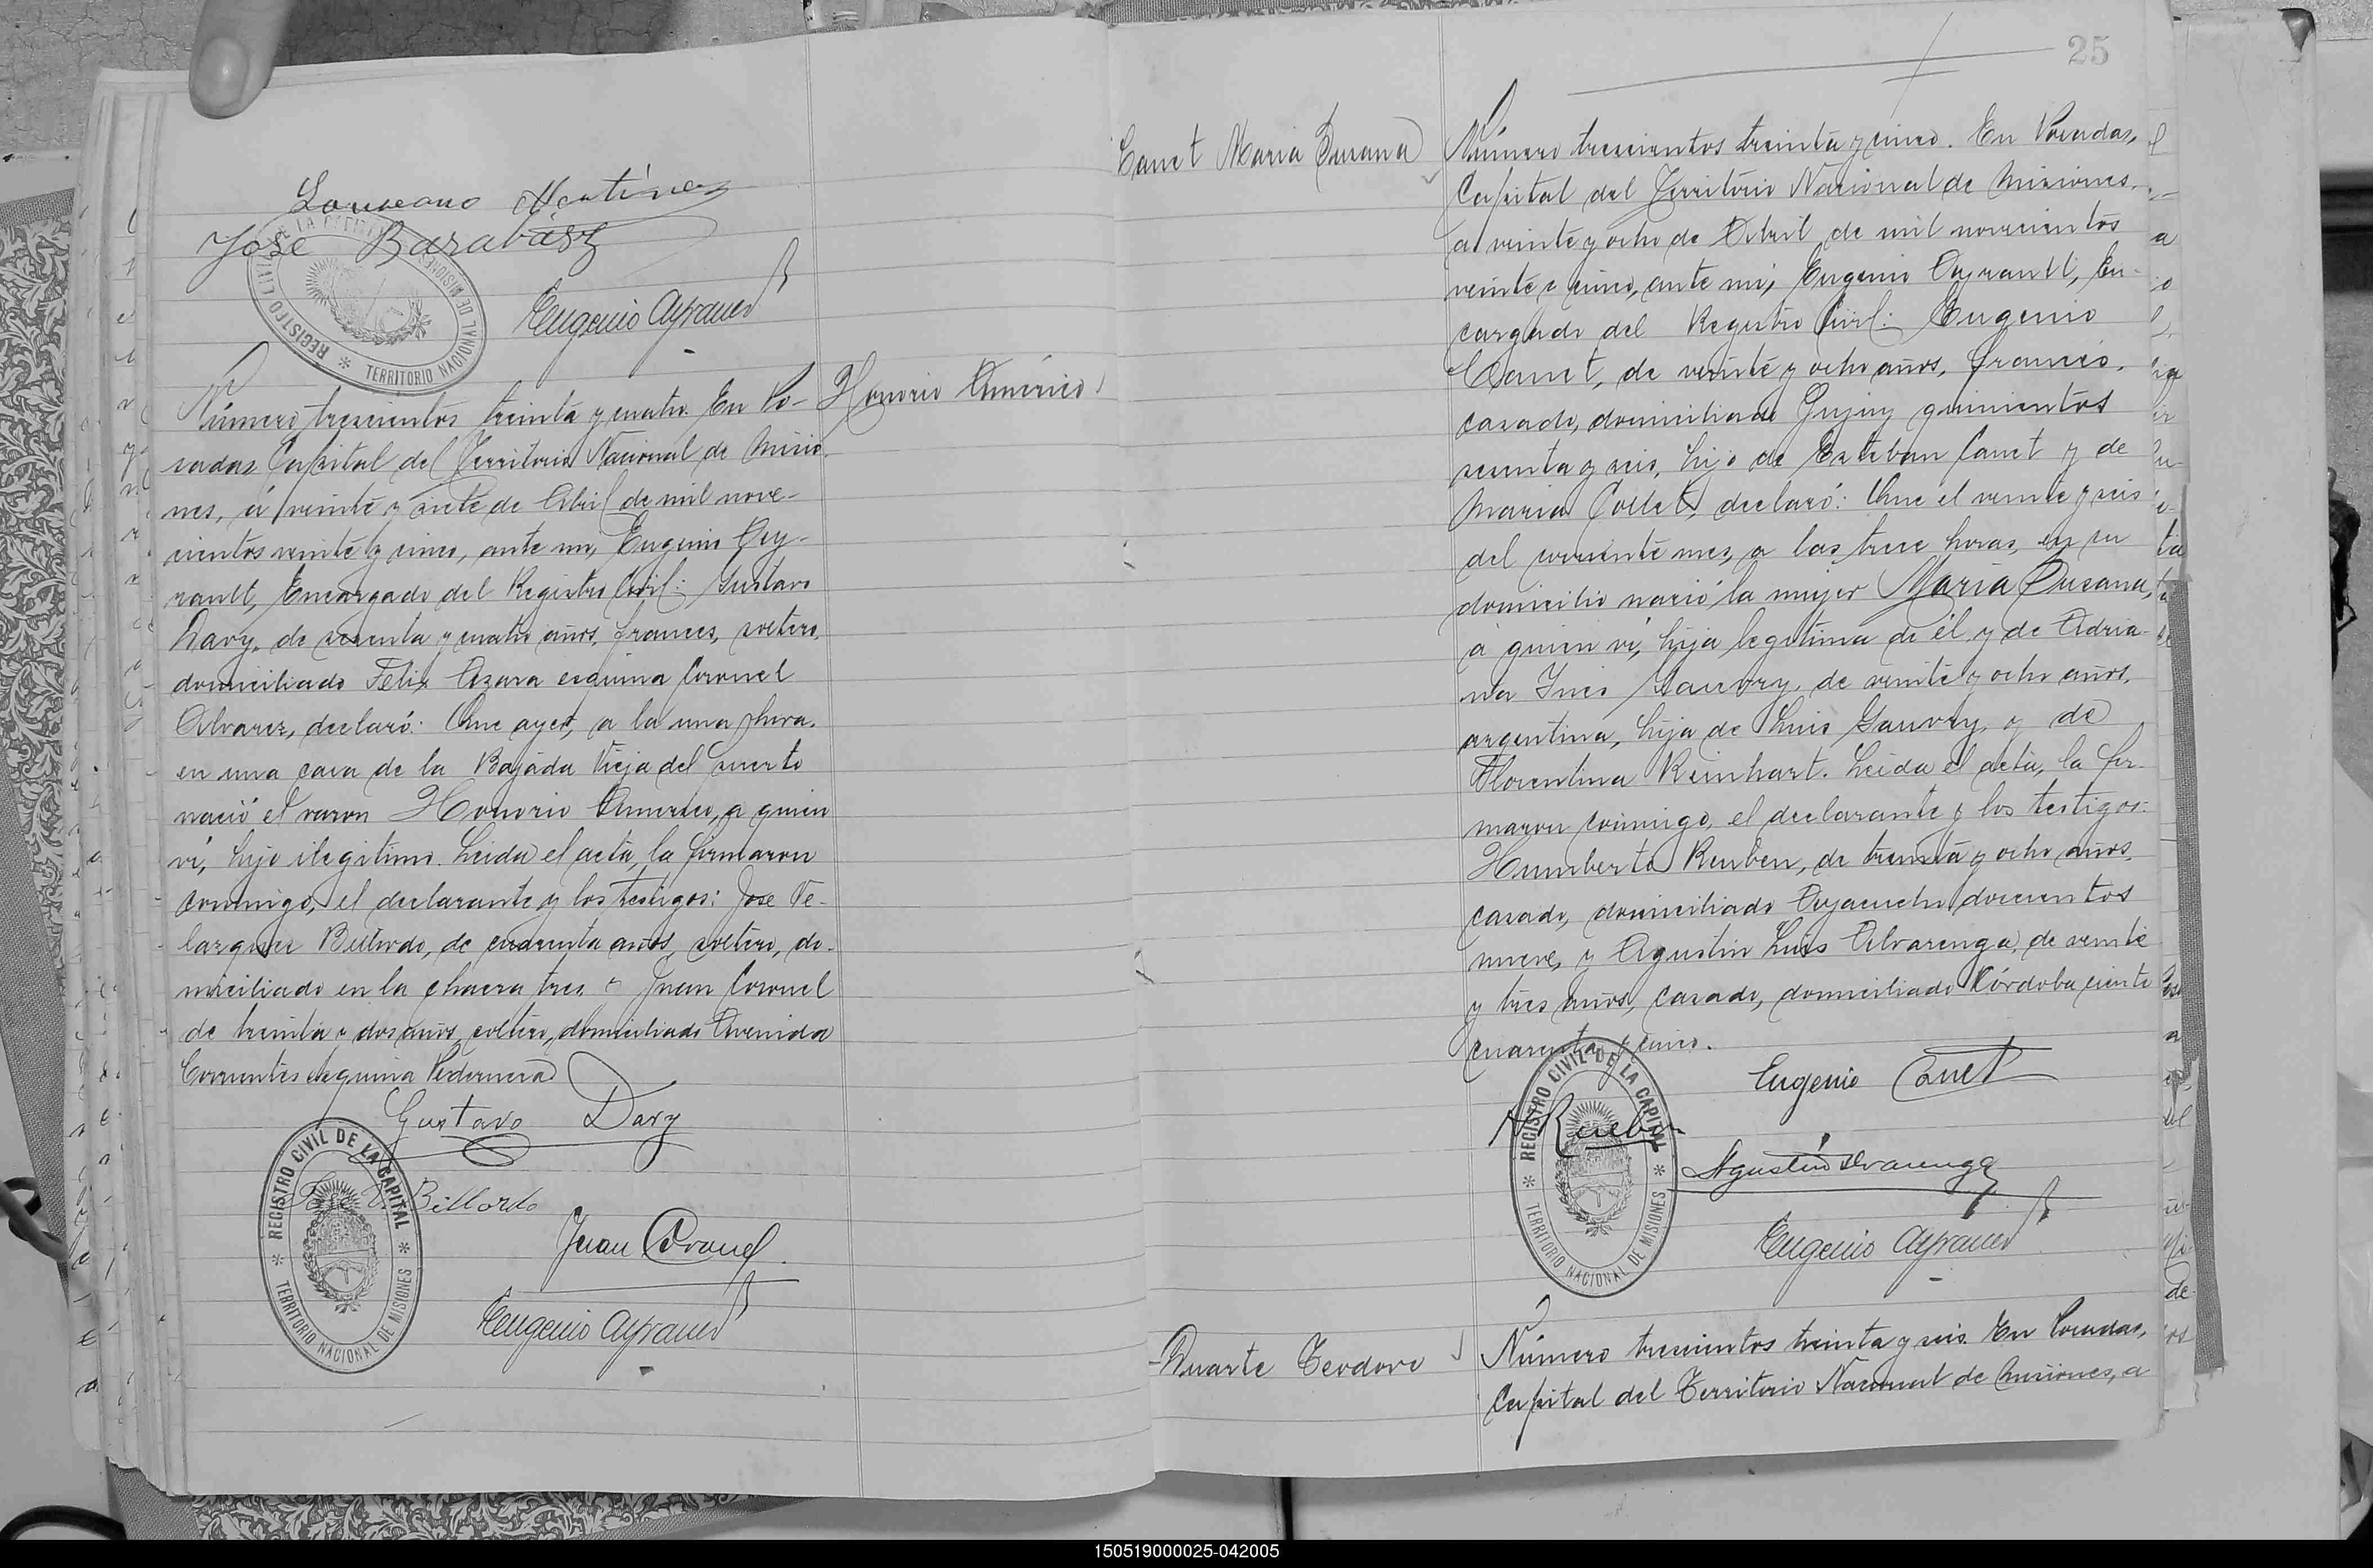 Laureano Martinez
José Barabasz
REGISTRO CIVIL DE LA CAPITAL
* TERRITORIO NACIONAL DE MISIONES
Eugenio Ayrault
Honorio Américo
Número trescientos treinta y cuatro. En Po-
sadas Capital del Territorio Nacional de Misio-
nes, á veinte y siete de Abril de mil nove-
cientos veinte y cinco, ante mi, Eugenio Ay-
rault, Encargado del Registro Civil: Gustavo
Davy, de sesenta y cuatro años, frances, soltero,
domiciliado Felix Azara esquina Coronel
Alvarez, declaró: Que ayer, a la una hora,
en una casa de la Bajada Vieja del puerto
nació el varon Honorio Americo, a quien
ví, hijo ilegitimo. Leida el acta, la firmaron
conmigo, el declarante y los testigos: Jose Ve-
lazquez Billordo, de cuarenta años, soltero, do-
miciliado en la chacra tres y Juan Coronel
de treinta y dos años, soltero, domiciliado Avenida
Corrientes esquina Pedernera
Gustavo Davy
* REGISTRO CIVIL DE LA CAPITAL *
TERRITORIO NACIONAL DE MISIONES
Jose V. Billordo
Juan Coronel
Eugenio Ayrault
25
Canet Maria Susana
Número trescientos treinta y cinco. En Posadas,
Capital del Territorio Nacional de Misiones,
a veinte y ocho de Abril de mil novecientos
veinte y cinco, ante mi, Eugenio Ayrault, En-
cargado del Registro Civil: Eugenio
Canet, de veinte y ocho años, frances,
casado, domiciliado Jujuy quinientos
sesenta y seis, hijo de Esteban Canet y de
Maria Collet, declaró: Que el veinte y seis
del corriente mes, a las trece horas, en su
domicilio nació la mujer Maria Susana,
a quien ví, hija legitima de él y de Adria-
na Ines Gauvry, de veinte y ocho años,
argentina, hija de Luis Gauvry, y de
Florentina Reinhart. Leida el acta, la fir-
maron conmigo, el declarante y los testigos:
Humberto Reuben, de treinta y ocho años,
casado, domiciliado Ayacucho doscientos
nueve, y Agustin Luis Alvarenga, de veinte
y tres años, casado, domiciliado Córdoba ciento
cuarenta y cinco.
Eugenio Canet
* REGISTRO CIVIL DE LA CAPITAL *
TERRITORIO NACIONAL DE MISIONES
H Reuben
Agustin Alvarenga
Eugenio Ayrault
Duarte Teodoro
Número trescientos treinta y seis. En Posadas,
Capital del Territorio Nacional de Misiones, a
150519000025-042005